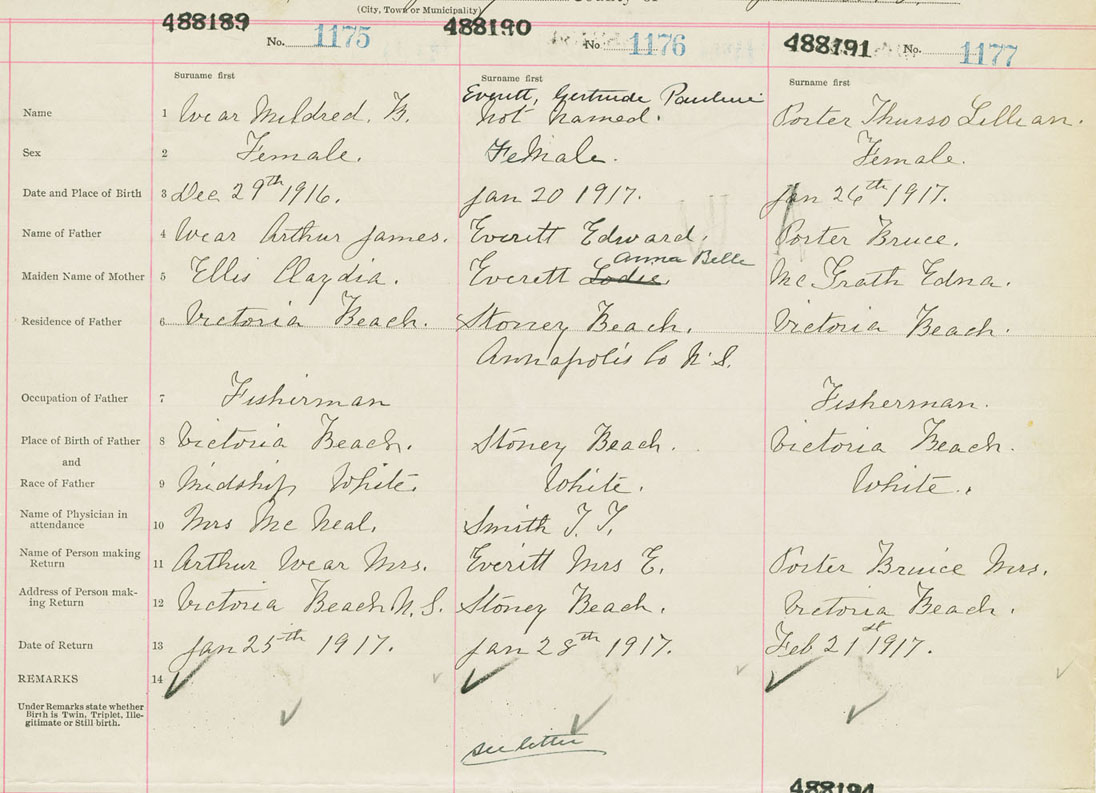 (City, Town or Municipality)
488189 488190 488191
No. 1175 No. 1176 No. 1177
Surname first Surname first Surname first
Everett, Gertrude Pauline
Name 1 Wear Mildred. B. Not Named. Porter Thurso Lillian.
Sex 2 Female. Female. Female.
Date and Place of Birth 3 Dec 29th 1916. Jan 20 1917. Jan 26th 1917.
Name of Father 4 Wear Arthur James. Everett Edward. Porter Bruce.
Anna Belle
Maiden Name of Mother 5 Ellis Claydia. Everett Lodie. Mc Grath Edna.
Residence of Father 6 Victoria Beach. Stoney Beach. Victoria Beach.
Annapolis Co N.S.
Occupation of Father 7 Fisherman Fisherman.
Place of Birth of Father 8 Victoria Beach. Stoney Beach. Victoria Beach.
and
Race of Father 9 Midship White. White. White.
Name of Physician in
attendance 10 Mrs Mc Neal. Smith T. T.
Name of Person making
Return 11 Arthur Wear Mrs. Everitt Mrs E. Porter Bruice Mrs.
Address of Person mak-
ing Return 12 Victoria Beach N.S. Stoney Beach. Victoria Beach.
Date of Return 13 Jan 25th 1917. Jan 28th 1917. Feb 21st 1917.
REMARKS 14
Under Remarks state whether
Birth is Twin, Triplet, Ille-
gitimate or Still birth.
see letter